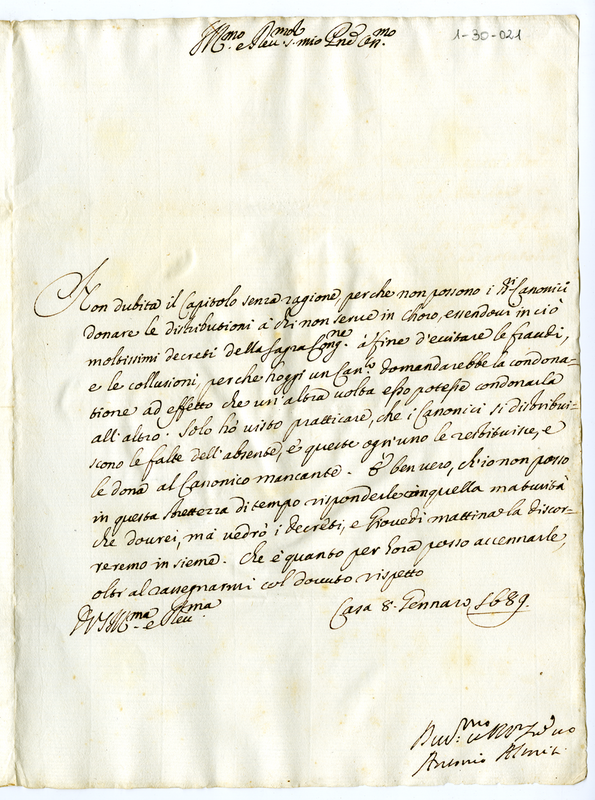 1-30-021
Ill.mo e Rev. S. mio Pne
Non dubita il Capitolo senza ragione, perche non possono i SS.ri Canonici
donare le distributioni à chi non serve in Choro, essendovi in ciò
moltissimi decreti della Sagra Cong.ne affine d'evitare le fraudi,
e le collusioni, perche hoggi un Can.co domandarebbe la condona-
tione ad effetto che un'altra volta esso potesse condonarla
all'altro. Solo hò visto pratticare, che i Canonici si distribui-
scono le falte dell'absente, è queste ogn'uno le restituisce, e
le dona al Canonico mancante. È ben vero, ch'io non posso
in questa strettezza di tempo risponderle con quella maturità
che dovrei, mà vedrò i decreti, e Giovedi mattina la discor-
reremo insieme. Che è quanto per hora posso accennarle,
oltr'al rassegnarmi col dovuto rispetto
Di VS Ill.ma e Rev.ma
Casa 8. Gennaro 1689.
Antonio